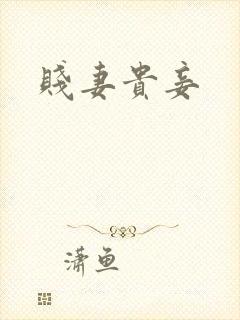 賤妻貴妾
潇鱼